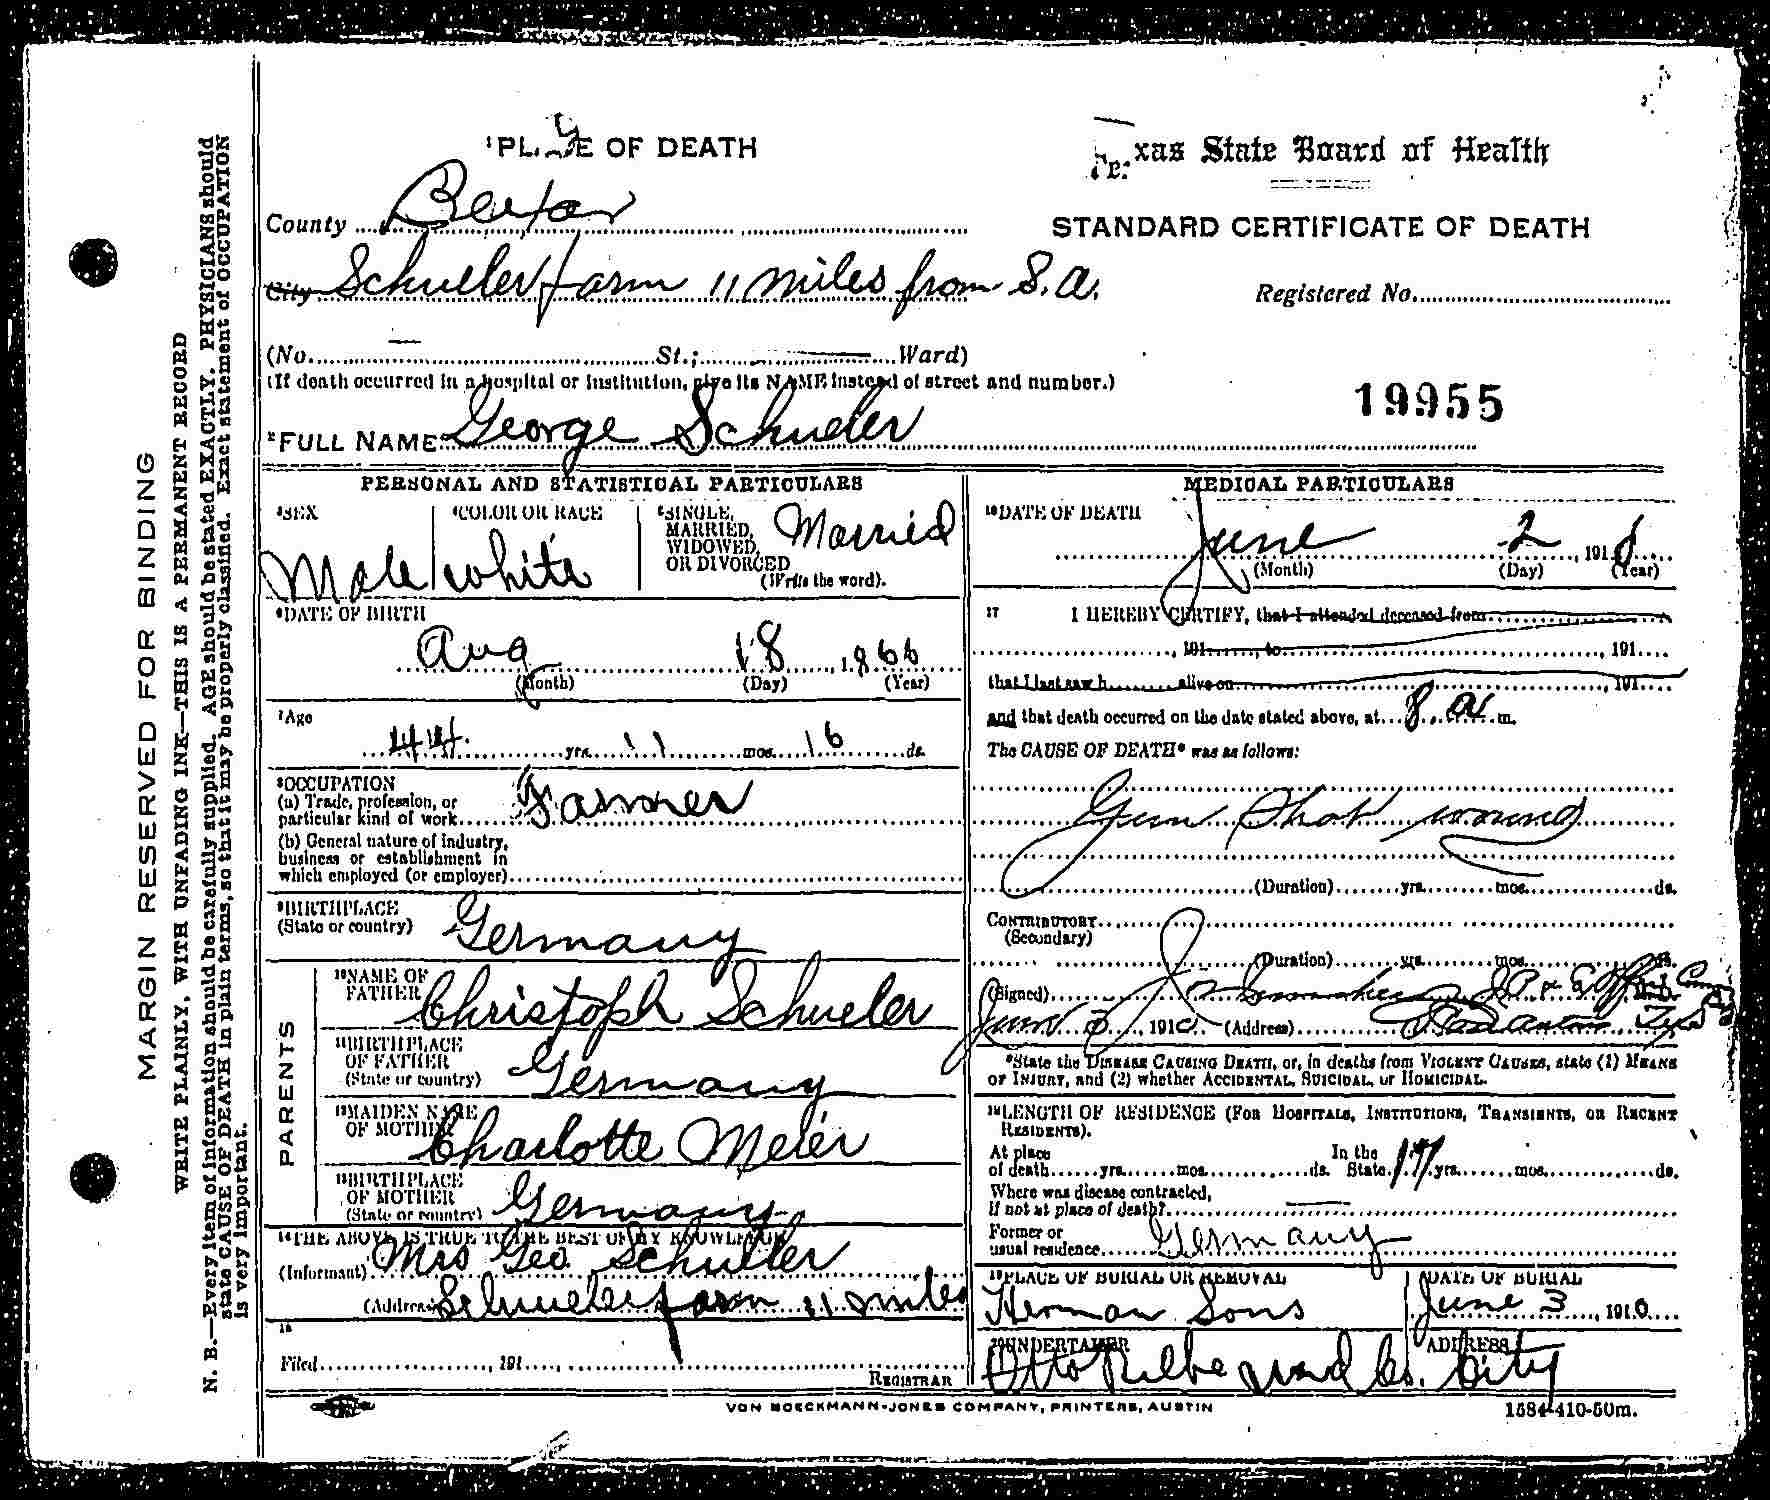 MARGIN RESERVED FOR BINDING
WRITE PLAINLY, WITH UNFADING INK—THIS IS A PERMANENT RECORD
N. B.—Every item of information should be carefully supplied. AGE should be stated EXACTLY. PHYSICIANS should
state CAUSE OF DEATH in plain terms, so that it may be properly classified. Exact statement of OCCUPATION
is very important.
1 PLACE OF DEATH
County Bexar
City Schueler farm 11 miles from S.A.
(No. — St.; — Ward)
(If death occurred in a hospital or institution, give its NAME instead of street and number.)
2 FULL NAME George Schueler
Texas State Board of Health
STANDARD CERTIFICATE OF DEATH
Registered No.
19955
PERSONAL AND STATISTICAL PARTICULARS
3 SEX
Male
4 COLOR OR RACE
white
5 SINGLE, MARRIED, WIDOWED, OR DIVORCED
(Write the word).
Married
6 DATE OF BIRTH
Aug 18, 1866
(Month) (Day) (Year)
7 Age
44 yrs. 11 mos. 16 ds.
8 OCCUPATION
(a) Trade, profession, or
particular kind of work Farmer
(b) General nature of industry,
business or establishment in
which employed (or employer)
9 BIRTHPLACE
(State or country) Germany
PARENTS
10 NAME OF
FATHER Christoph Schueler
11 BIRTHPLACE
OF FATHER
(State or country) Germany
12 MAIDEN NAME
OF MOTHER Charlotte Meier
13 BIRTHPLACE
OF MOTHER
(State or country) Germany
14 THE ABOVE IS TRUE TO THE BEST OF MY KNOWLEDGE
(Informant) Mrs Geo. Schueler
(Address) Schueler farm 11 miles
15
Filed , 191 ,
REGISTRAR
MEDICAL PARTICULARS
16 DATE OF DEATH
June 2, 1910
(Month) (Day) (Year)
17 I HEREBY CERTIFY, that I attended deceased from
, 191 , to , 191
that I last saw h alive on , 191
and that death occurred on the date stated above, at 8 a. m.
The CAUSE OF DEATH* was as follows:
Gun Shot wound
(Duration) yrs. mos. ds.
CONTRIBUTORY
(Secondary)
(Duration) yrs. mos. ds.
(Signed) J.P. & Ex Off
June 3, 1910 (Address) San Antonio Texas
*State the DISEASE CAUSING DEATH, or, in deaths from VIOLENT CAUSES, state (1) MEANS
OF INJURY, and (2) whether ACCIDENTAL, SUICIDAL, or HOMICIDAL.
18 LENGTH OF RESIDENCE (FOR HOSPITALS, INSTITUTIONS, TRANSIENTS, OR RECENT
RESIDENTS).
At place In the
of death yrs. mos. ds. State 17 yrs. mos. ds.
Where was disease contracted,
If not at place of death? —
Former or
usual residence Germany
19 PLACE OF BURIAL OR REMOVAL
Herman Sons
DATE OF BURIAL
June 3, 1910
20 UNDERTAKER
Otto Riebe Und Co.
ADDRESS
City
VON BOECKMANN-JONES COMPANY, PRINTERS, AUSTIN
1584-410-50m.